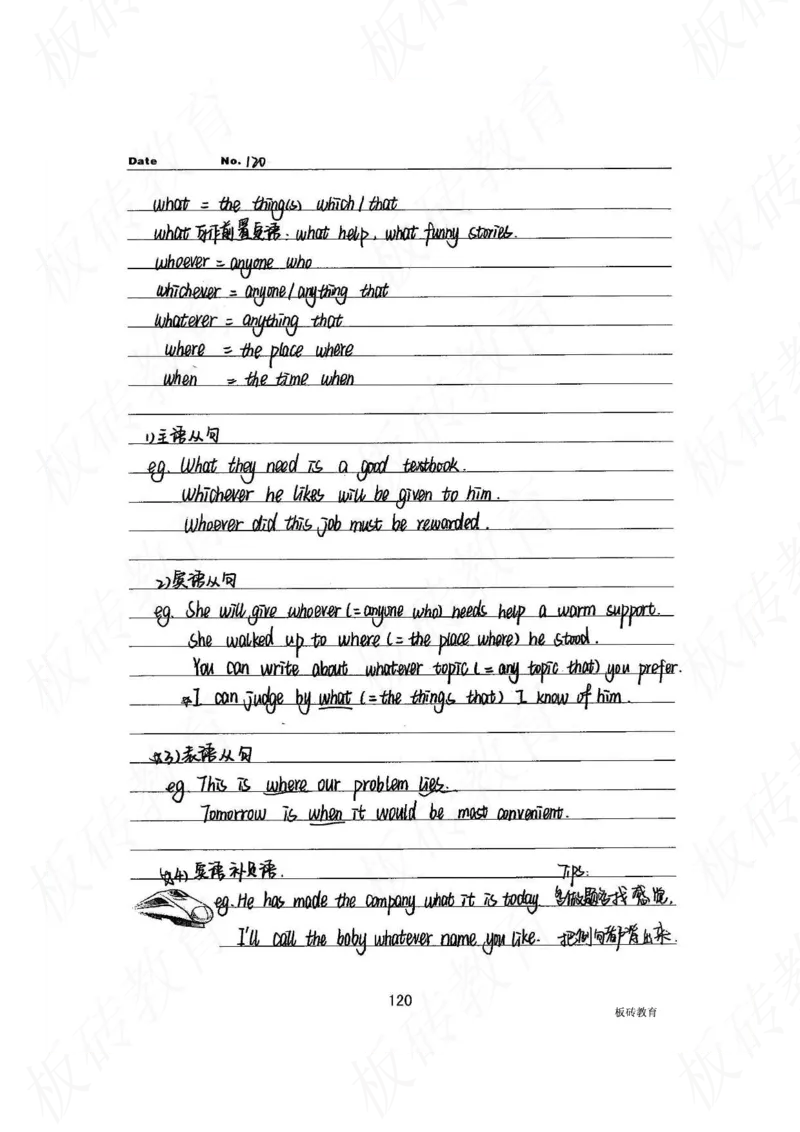 Date No. 120
what = the thing(s) which / that
what 可作前置定语: what help, what funny stories.
whoever = anyone who
whichever = anyone / anything that
whatever = anything that
where = the place where
when = the time when
1)主语从句
eg. What they need is a good textbook.
Whichever he likes will be given to him.
Whoever did this job must be rewarded.
2)宾语从句
eg. She will give whoever (= anyone who) needs help a warm support.
She walked up to where (= the place where) he stood.
You can write about whatever topic (= any topic that) you prefer.
☆I can judge by what (= the things that) I know of him.
☆3)表语从句
eg. This is where our problem lies.
Tomorrow is when it would be most convenient.
☆4)宾语补足语.
Tips:
eg. He has made the company what it is today. 多做题多找感觉,
I'll call the baby whatever name you like. 把例句都背出来.
120
板砖教育